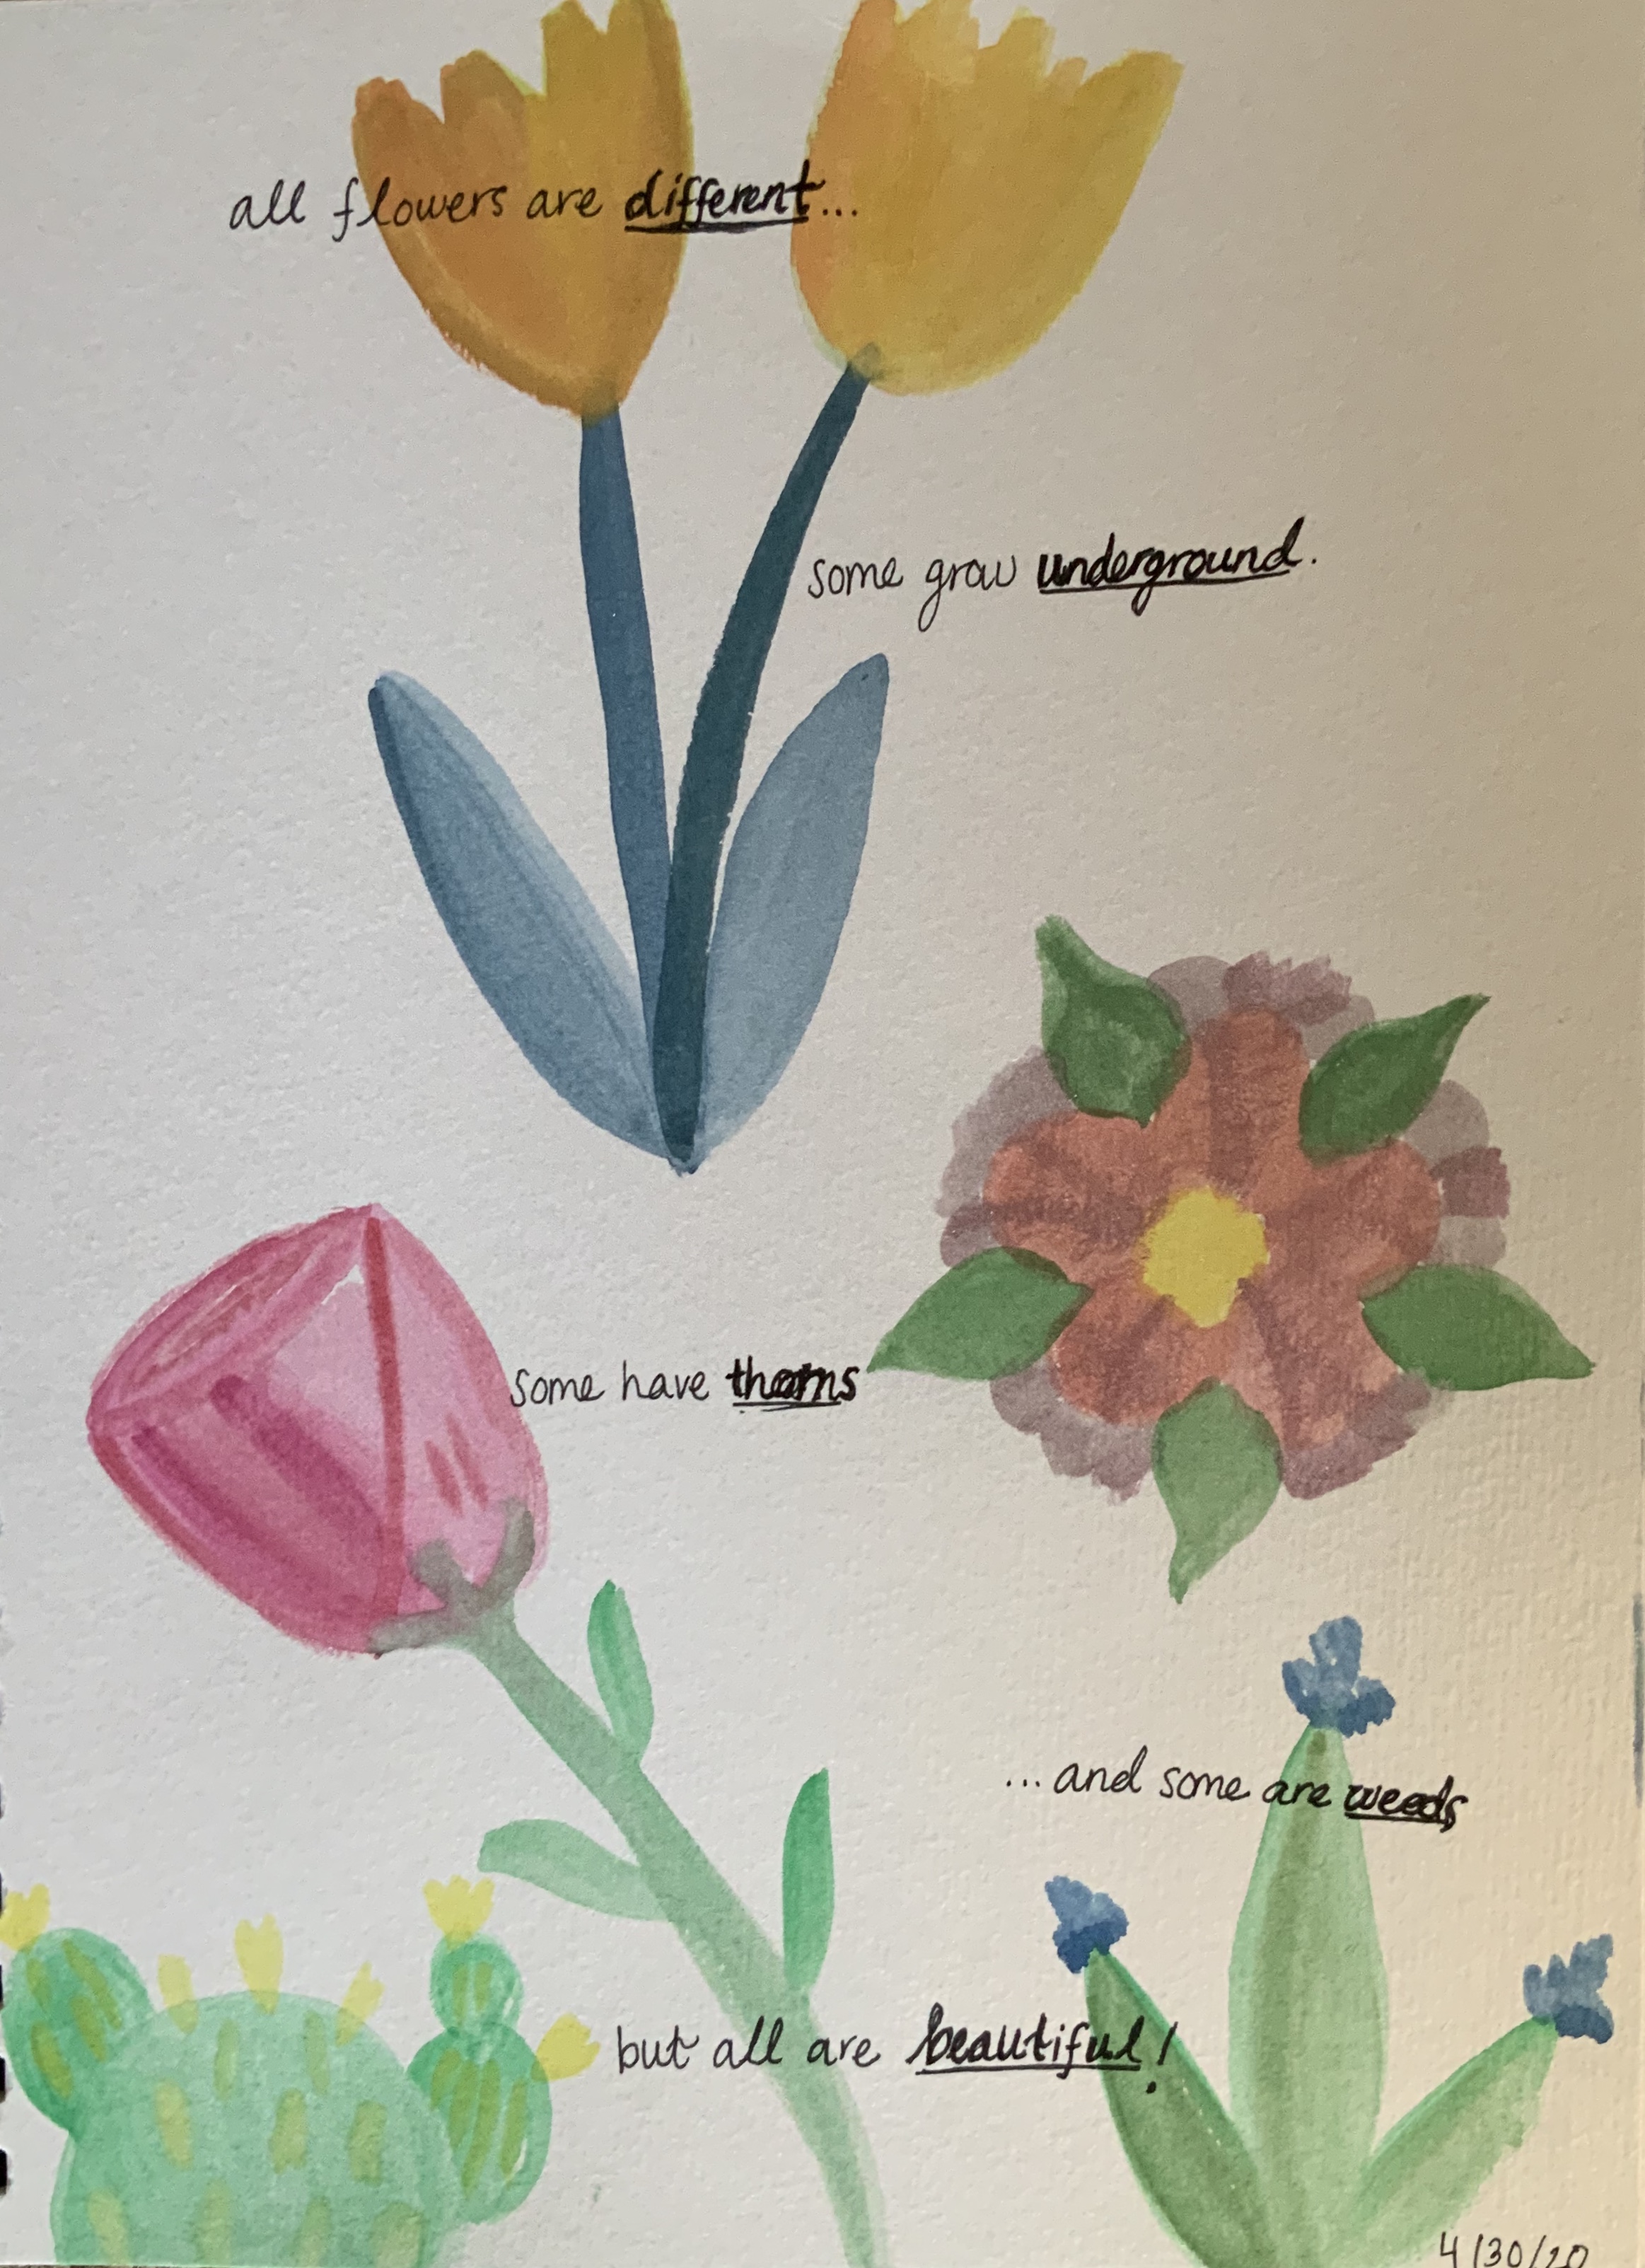 all flowers are different...
some grow underground.
some have thorns
...and some are weeds
but all are beautiful!
4/30/20